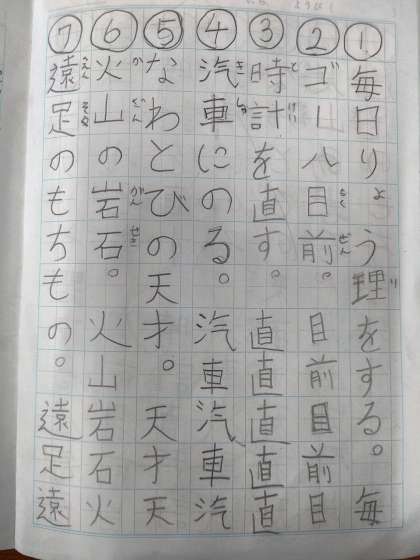 ① 毎日りょう理をする。毎
② ゴール目前。目前目前目
③ 時計を直す。直直直直直
④ 汽車にのる。汽車汽車汽
⑤ なわとびの天才。天才天
⑥ 火山の岩石。火山岩石火
⑦ 遠足のもちもの。遠足遠